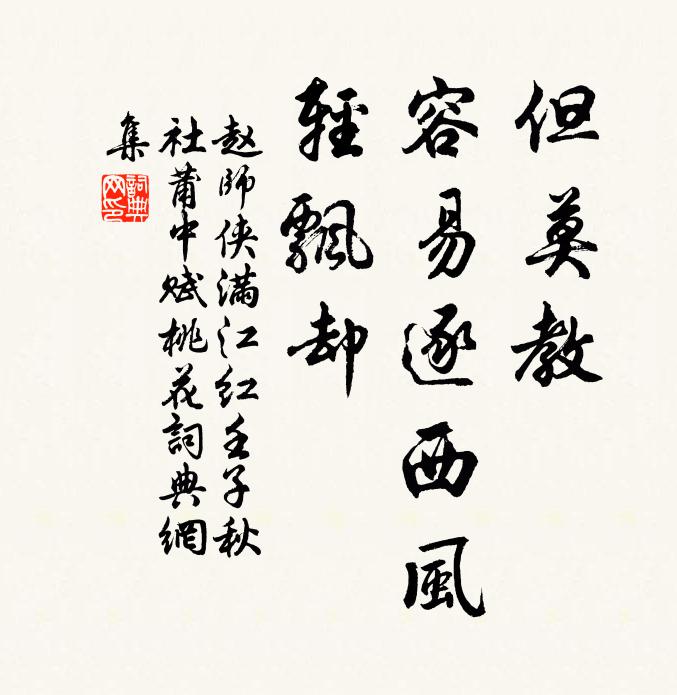 但莫教
容易逐西風
輕飄却
赵師俠满江红壬子秋
社莆中赋桃花詞典網
集
詞典
网印